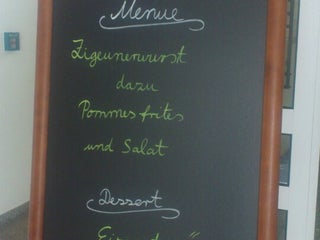 Menue
Zigeunerwurst
dazu
Pommes frites
und Salat
Dessert